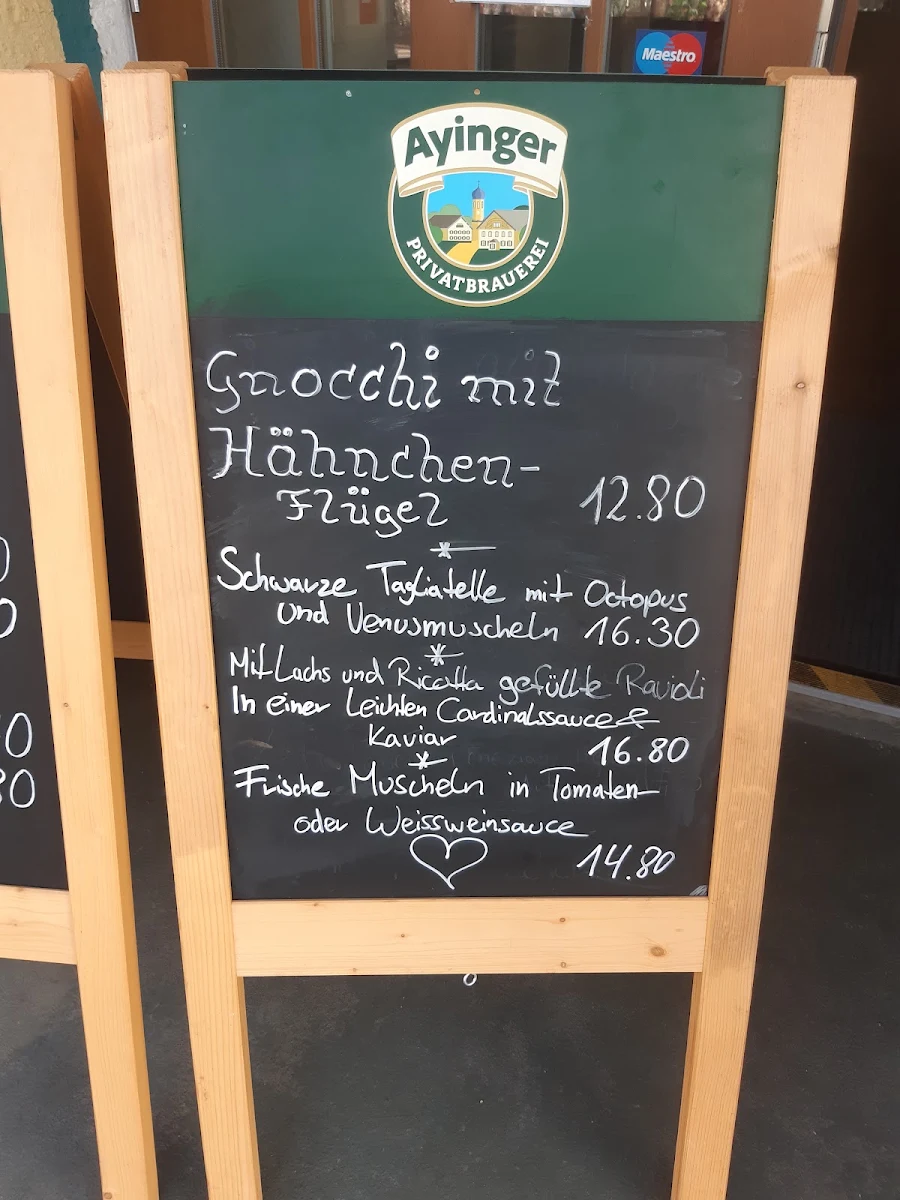 Maestro
Ayinger
PRIVATBRAUEREI
Gnocchi mit
Hähnchen-
Flügel 12.80
Schwarze Tagliatelle mit Octopus
und Venusmuscheln 16.30
Mit Lachs und Ricotta gefüllte Ravioli
In einer Leichten Cardinalssauce &
Kaviar 16.80
Frische Muscheln in Tomaten-
oder Weissweinsauce
14.80